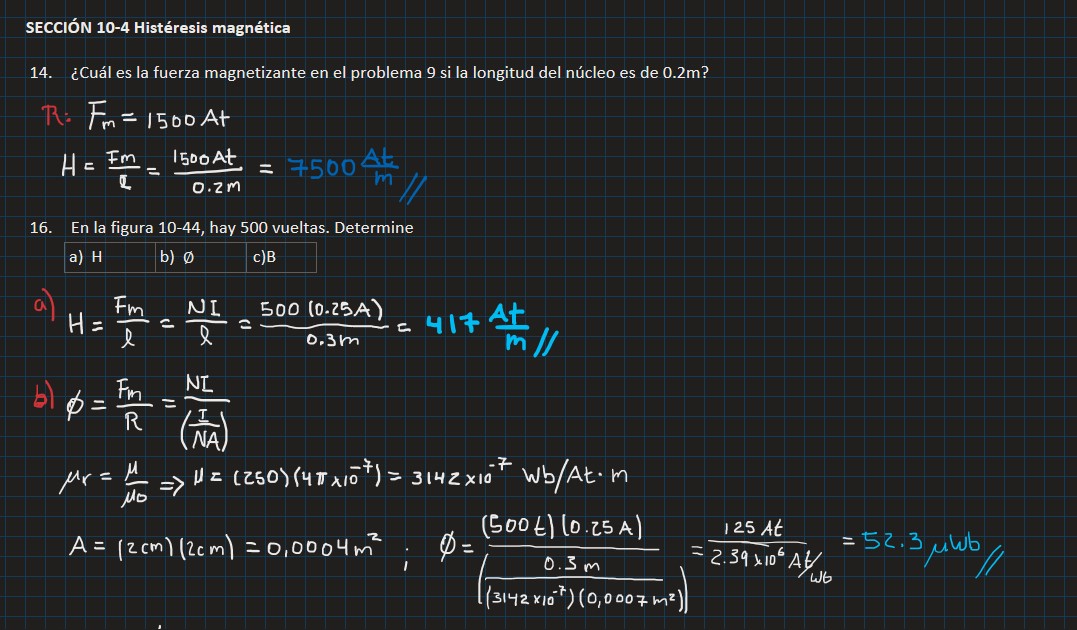 SECCIÓN 10-4 Histéresis magnética
14. ¿Cuál es la fuerza magnetizante en el problema 9 si la longitud del núcleo es de 0.2m?
R: Fm = 1500 At
H = Fm/l = 1500At/0.2m = 7500 At/m //
16. En la figura 10-44, hay 500 vueltas. Determine
a) H b) Ø c)B
a) H = Fm/l = NI/l = 500 (0.25A)/0.3m = 417 At/m //
b) ϕ = Fm/R = NI/(I/NA)
μr = μ/μo => μ = (250)(4π x10^-7) = 3142x10^-7 Wb/At·m
A = (2cm)(2cm) = 0,0004m² ; ϕ = (500t)(0.25A)/(0.3m/((3142x10^-7)(0,0007m²))) = 125 At/2.39x10^6 At/Wb = 52.3 μWb //